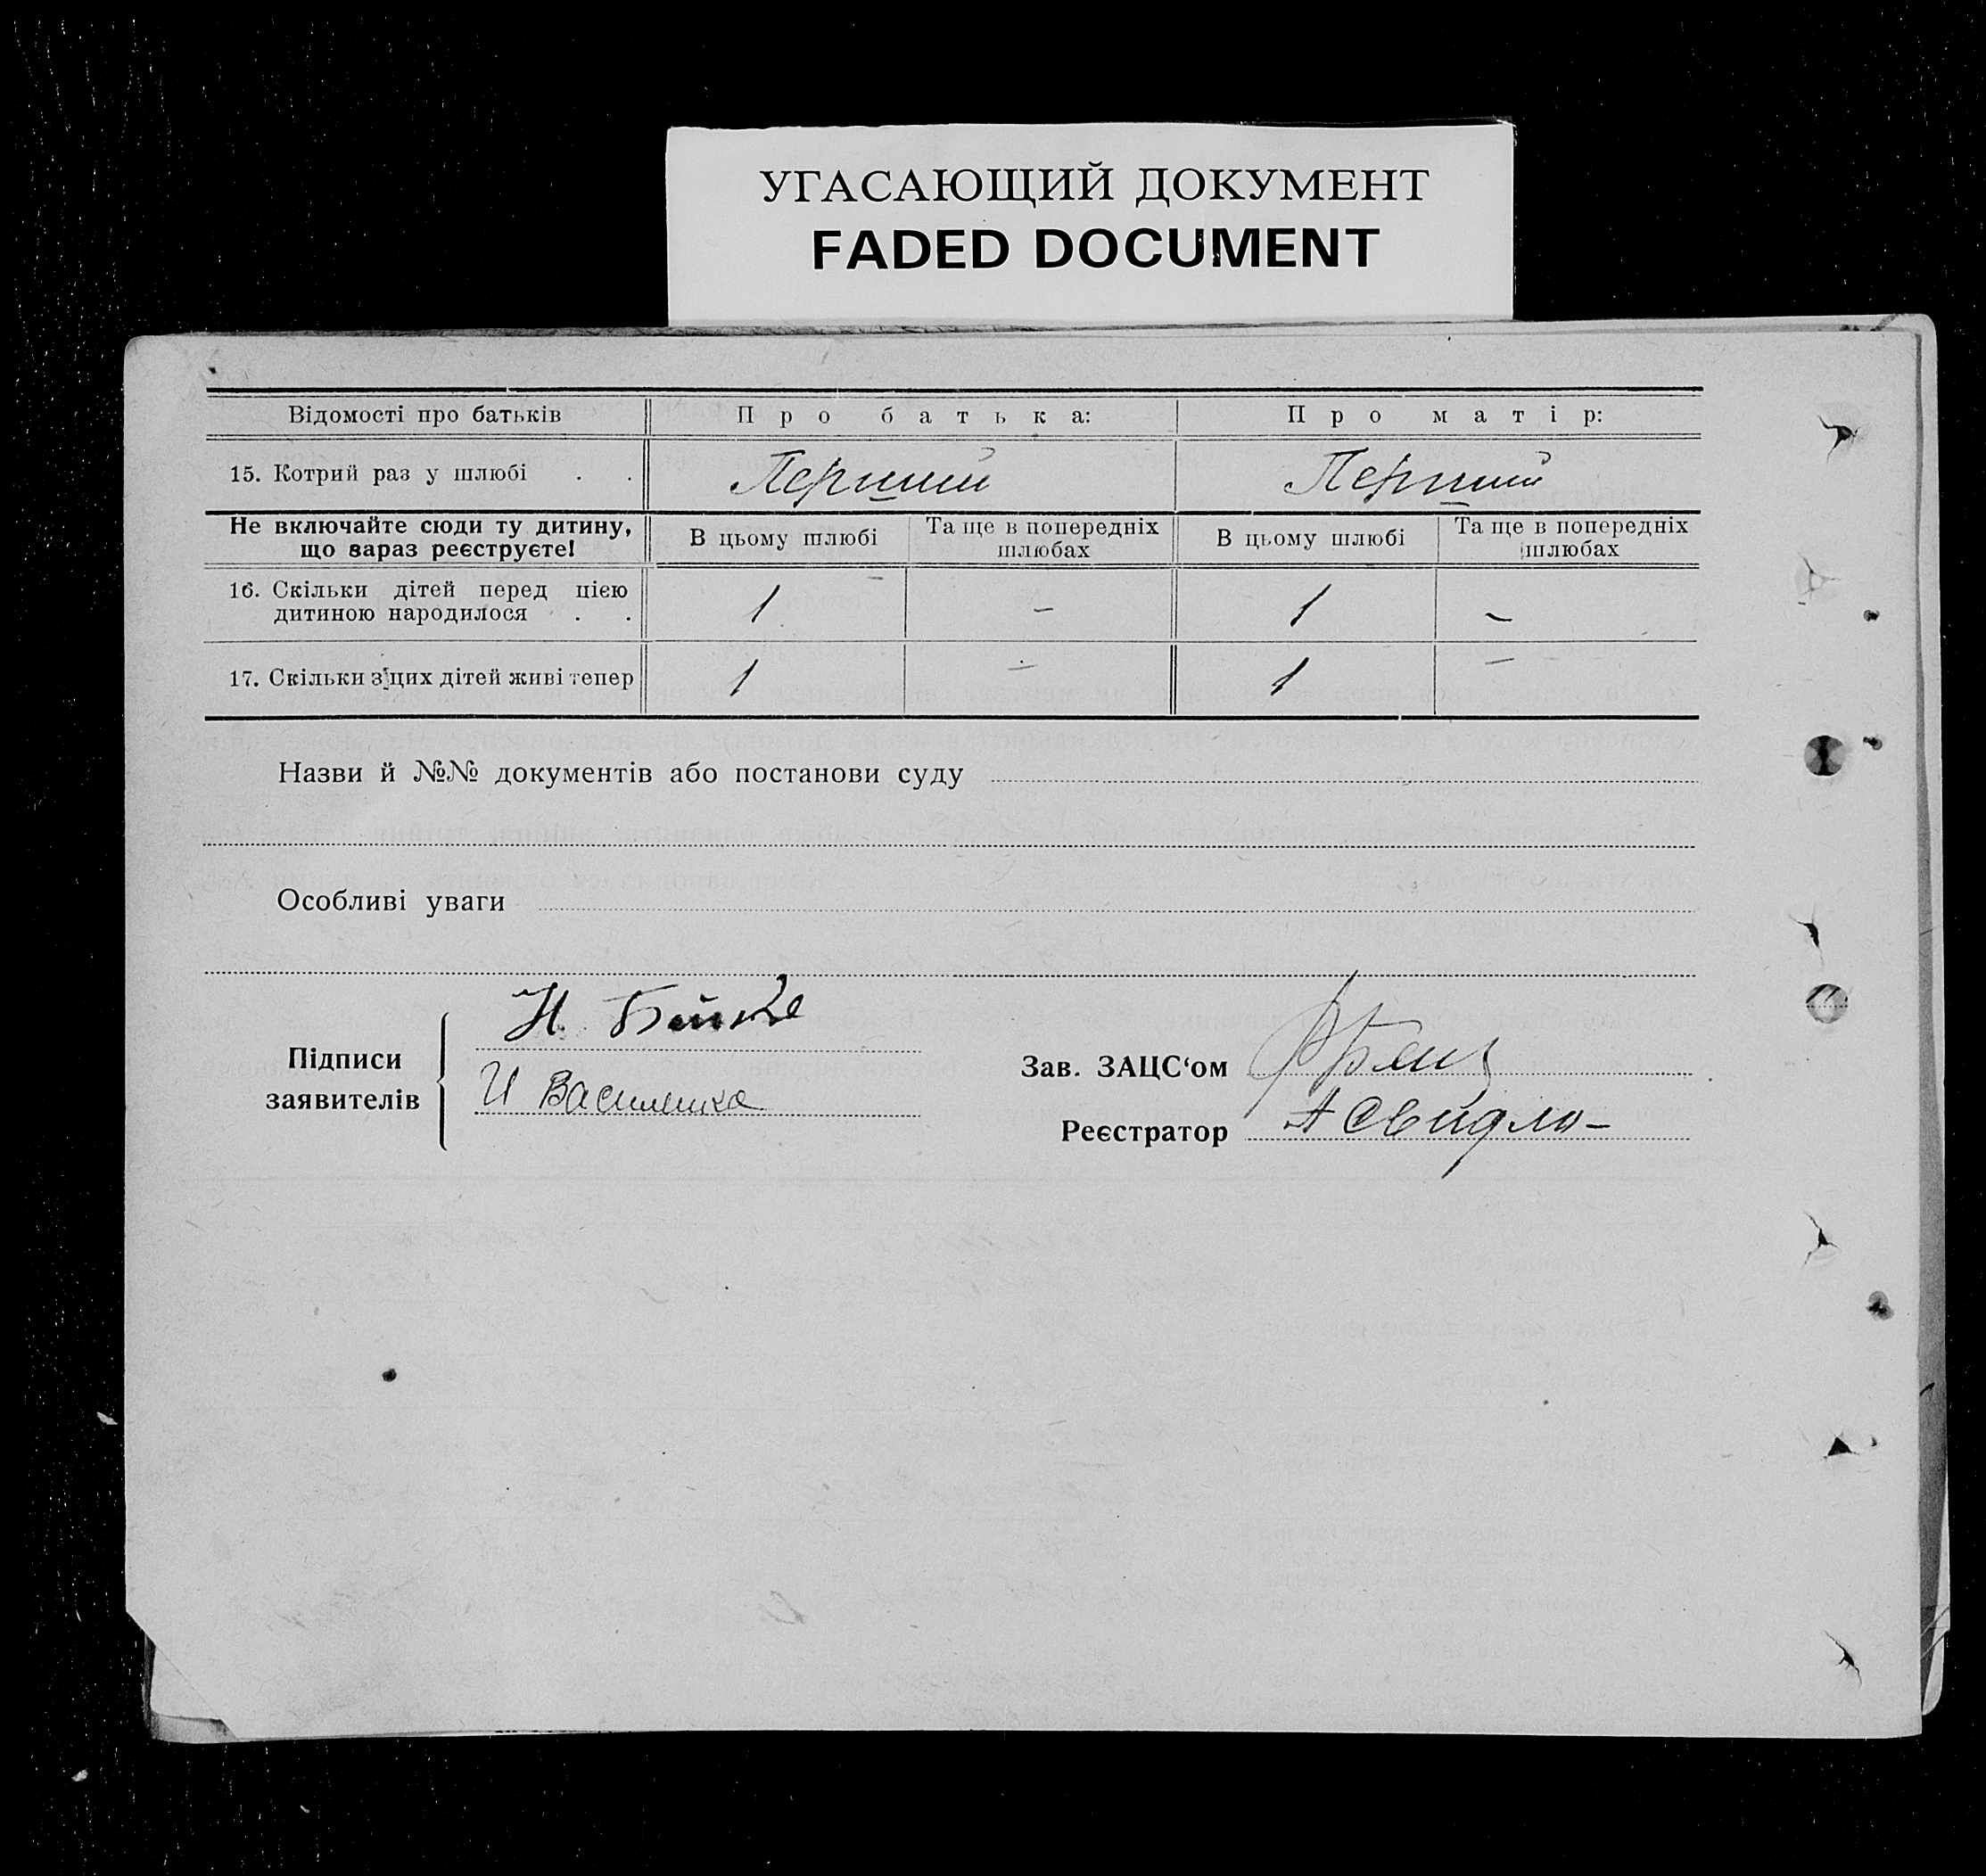 УГАСАЮЩИЙ ДОКУМЕНТ
FADED DOCUMENT
Відомості про батьків Про батька: Про матір:
15. Котрий раз у шлюбі . . Перший Перший
Не включайте сюди ту дитину, що зараз реєструєте! В цьому шлюбі Та ще в попередніх шлюбах В цьому шлюбі Та ще в попередніх шлюбах
16. Скільки дітей перед цією дитиною народилося . . 1 – 1 –
17. Скільки з цих дітей живі тепер 1 – 1 –
Назви й №№ документів або постанови суду
Особливі уваги
Підписи заявителів
Н.
И Василенко
Зав. ЗАЦС‘ом
Реєстратор А Свидло-